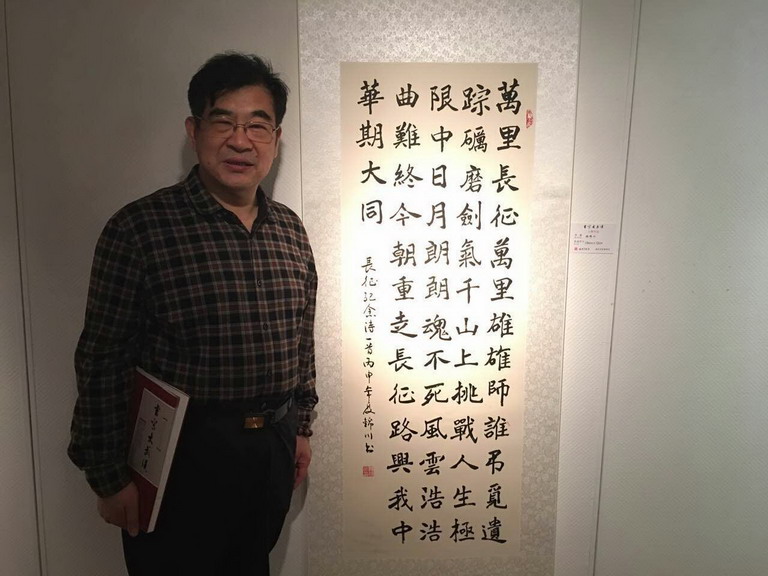 萬里長征萬里雄雄師誰弔覓遺
踪礪磨劍氣千山上挑戰人生極
限中日月朗朗魂不死風雲浩浩
曲難終今朝重走長征路興我中
華期大同
長征紀念詩一首丙申年錦川书